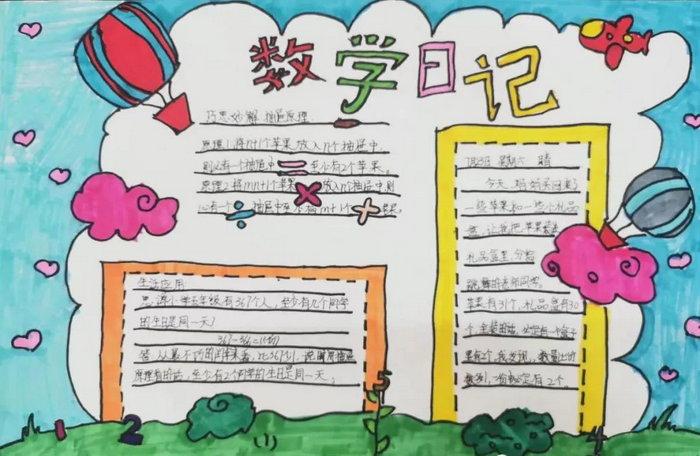 数学日记
巧思妙解 抽屉原理
原理1:将n+1个苹果放入n个抽屉中
则必有一个抽屉中至少有2个苹果。
原理2:将mn+1个苹果放入n个抽屉中,则
必有一个抽屉中至少有m+1个苹果
生活应用
思源小学五年级有367个人,至少有几个同学
的生日是同一天?
367-366=1(个)
答:从最不巧的闰年来看,
原理有的话,至少有2个同学的生日是同一天。
7月23日 星期六 晴
今天,妈妈买回来了
一些苹果和一些小礼品
盒,让我把苹果装进
礼品盒里,分给
跳舞的老师同学。
苹果有31个,礼品盒有30
个,全装的话,必定有一个盒子
里有2个,我发现,数量比份
数多1,一份必定有2个
1
2
5
4